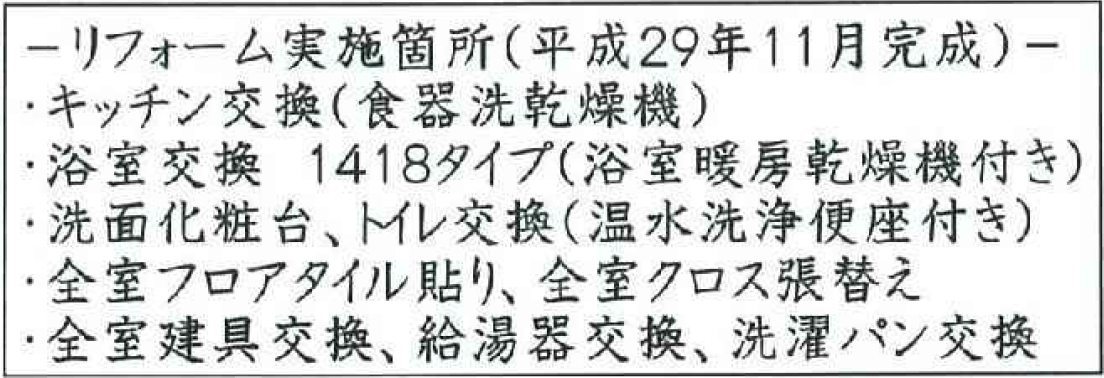 －リフォーム実施箇所(平成29年11月完成)－
・キッチン交換(食器洗乾燥機)
・浴室交換　1418タイプ(浴室暖房乾燥機付き)
・洗面化粧台、トイレ交換(温水洗浄便座付き)
・全室フロアタイル貼り、全室クロス張替え
・全室建具交換、給湯器交換、洗濯パン交換